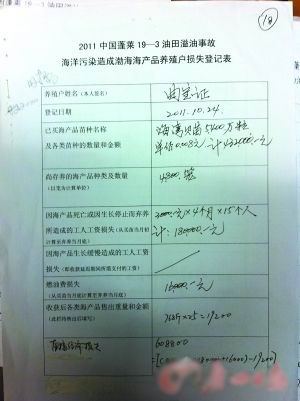 2011 中国蓬莱 19—3 油田溢油事故
海洋污染造成渤海海产品养殖户损失登记表
养殖户姓名(本人签名)
登记日期
2011.10.24.
已买海产品苗种名称
及各类苗种的数量和金额
海湾贝苗5400万粒
单价0.008元 计432000.—元
尚存养的海产品种类及数量
(以笼为计算单位)
4800.笼
因海产品死亡或因生长停止而弃养
所造成的工人工资损失(从买苗当月初
计算至弃养当月底)
3000.元×4个月×15个人
计:180000.—元
因海产品生长缓慢造成的工人工资
损失
燃油费损失
(从买苗当月计算至弃养当月底)
16000.—元
收获后各类海产品售出重量和金额
768斤×25=19200
608800
+16000)-19200)